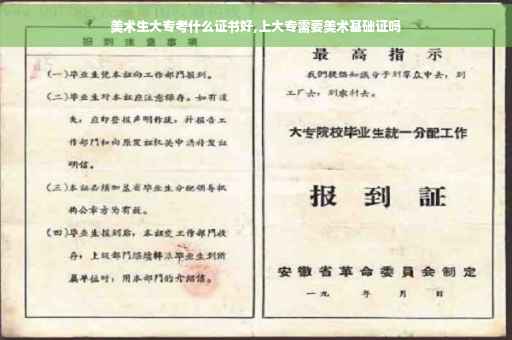 美术生大专考什么证书好,上大专需要美术基础证吗
报到注意事项
(一)毕业生凭本证向工作部门报到。
(二)毕业生对本证应注意保存。如有遗
失,应即登报声明作废,并报告工
作部门和向原发证机关申请补发证
明信。
(三)本证必须加盖省毕业生分配领导机
构公章方为有效。
(四)毕业生报到后,本证交工作部门收
存;上级部门
毕业生到所
属单位时,用本部门的介绍信。
最高指示
我们提倡知识分子到羣众中去,到
工厂去,到农村去。
大专院校毕业生統一分配工作
报到証
安徽省革命委員会制定
一九 年 月 日